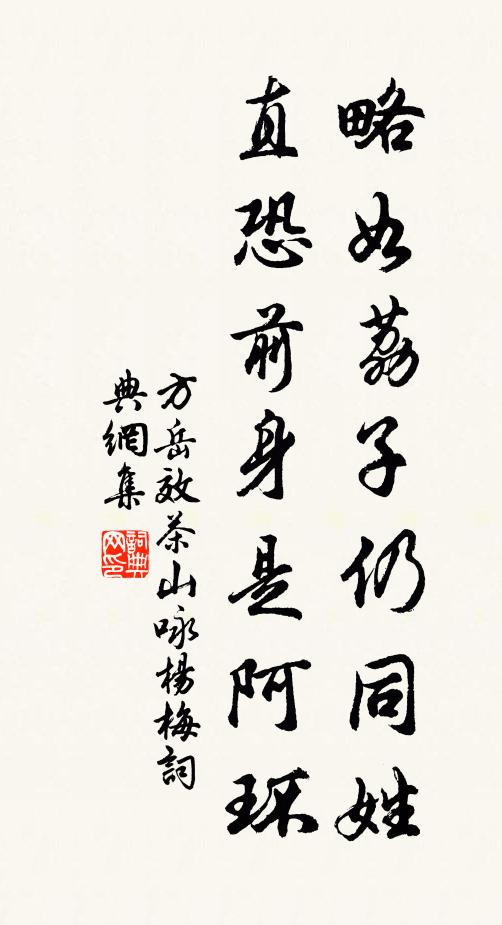 略如荔子仍同姓
直恐前身是阿环
方岳效茶山咏楊梅詞
典網集
詞典
网印